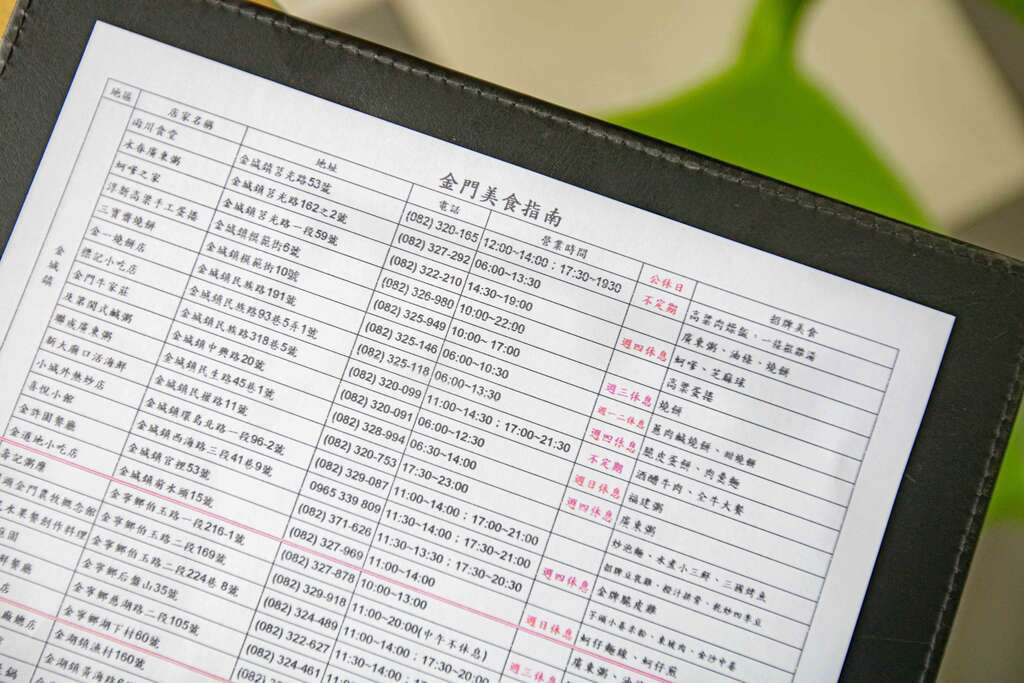 金門美食指南
地區 店家名稱 地址 電話 營業時間 公休日 招牌美食
金城鎮
川食堂 金城鎮莒光路53號 (082) 320-165 12:00~14:00；17:30~1930 不定期 高粱肉燥飯、一條
永春廣東粥 金城鎮莒光路162之2號 (082) 327-292 06:00~13:30 廣東粥、油條、燒餅
蚵嗲之家 金城鎮莒光路一段59號 (082) 322-210 14:30~19:00 週四休息 蚵嗲、芝麻球
淳新高粱手工蛋捲 金城鎮模範街6號 (082) 326-980 10:00~22:00 高粱蛋捲
三寶齋燒餅 金城鎮模範街10號 (082) 325-949 10:00~ 17:00 週三休息 燒餅
金一燒餅店 金城鎮民族路191號 (082) 325-146 06:00~10:30 週一二休息 蔥肉鹹燒餅、甜燒餅
標記小吃店 金城鎮民族路93巷5弄1號 (082) 325-118 06:00~13:30 週四休息 脆皮蛋餅、肉羹麵
金門牛家莊 金城鎮民族路318巷5號 (082) 320-099 11:00~14:30；17:30~21:30 不定期 酒糟牛肉、全牛大餐
及第閩式鹹粥 金城鎮中興路20號 (082) 320-091 06:00~12:30 週日休息 福建粥
聯成廣東粥 金城鎮民生路45巷1號 (082) 328-994 06:30~14:00 週四休息 廣東粥
新大廟口活海鮮 金城鎮民權路11號 (082) 320-753 17:30~23:00 炒泡麵、水煮小三鮮、三國烤魚
小城外熱炒店 金城鎮環島北路一段96-2號 (082) 329-087 11:00~14:00；17:00~21:00 招牌豆乳雞、橙汁排骨、乾炒四季豆
喜悅小館 金城鎮西海路三段41巷9號 0965 339 809 11:30~14:00；17:00~21:00 週四休息 金牌脆皮雞
金許園餐廳 金城鎮官裡53號 (082) 371-626 11:30~13:30；17:30~20:30 東坡肉、金沙中卷
金道地小吃店 金城鎮前水頭15號 (082) 327-969 11:00~14:00 週日休息 蚵仔麵線、蚵仔煎
壽記粥糜 金寧鄉伯玉路一段216-1號 (082) 327-878 10:00~13:00 廣東粥、油
金門農牧概念館 金寧鄉伯玉路二段169號 (082) 329-918 11:00~20:00(中午不休息) 週三休息
木果餐創作料理 金寧鄉伯玉路二段224巷 8號 (082) 324-489 11:00~14:00；17:30~20:00
園 金寧鄉后盤山35號 (082) 322-627 11:30~14:00；17:00~20:
餐廳 金寧鄉慈湖路二段105號 (082) 324-461
店 金寧鄉湖下村60號
廠總店 金湖鎮漁村160號
鍋 金湖鎮黃海路